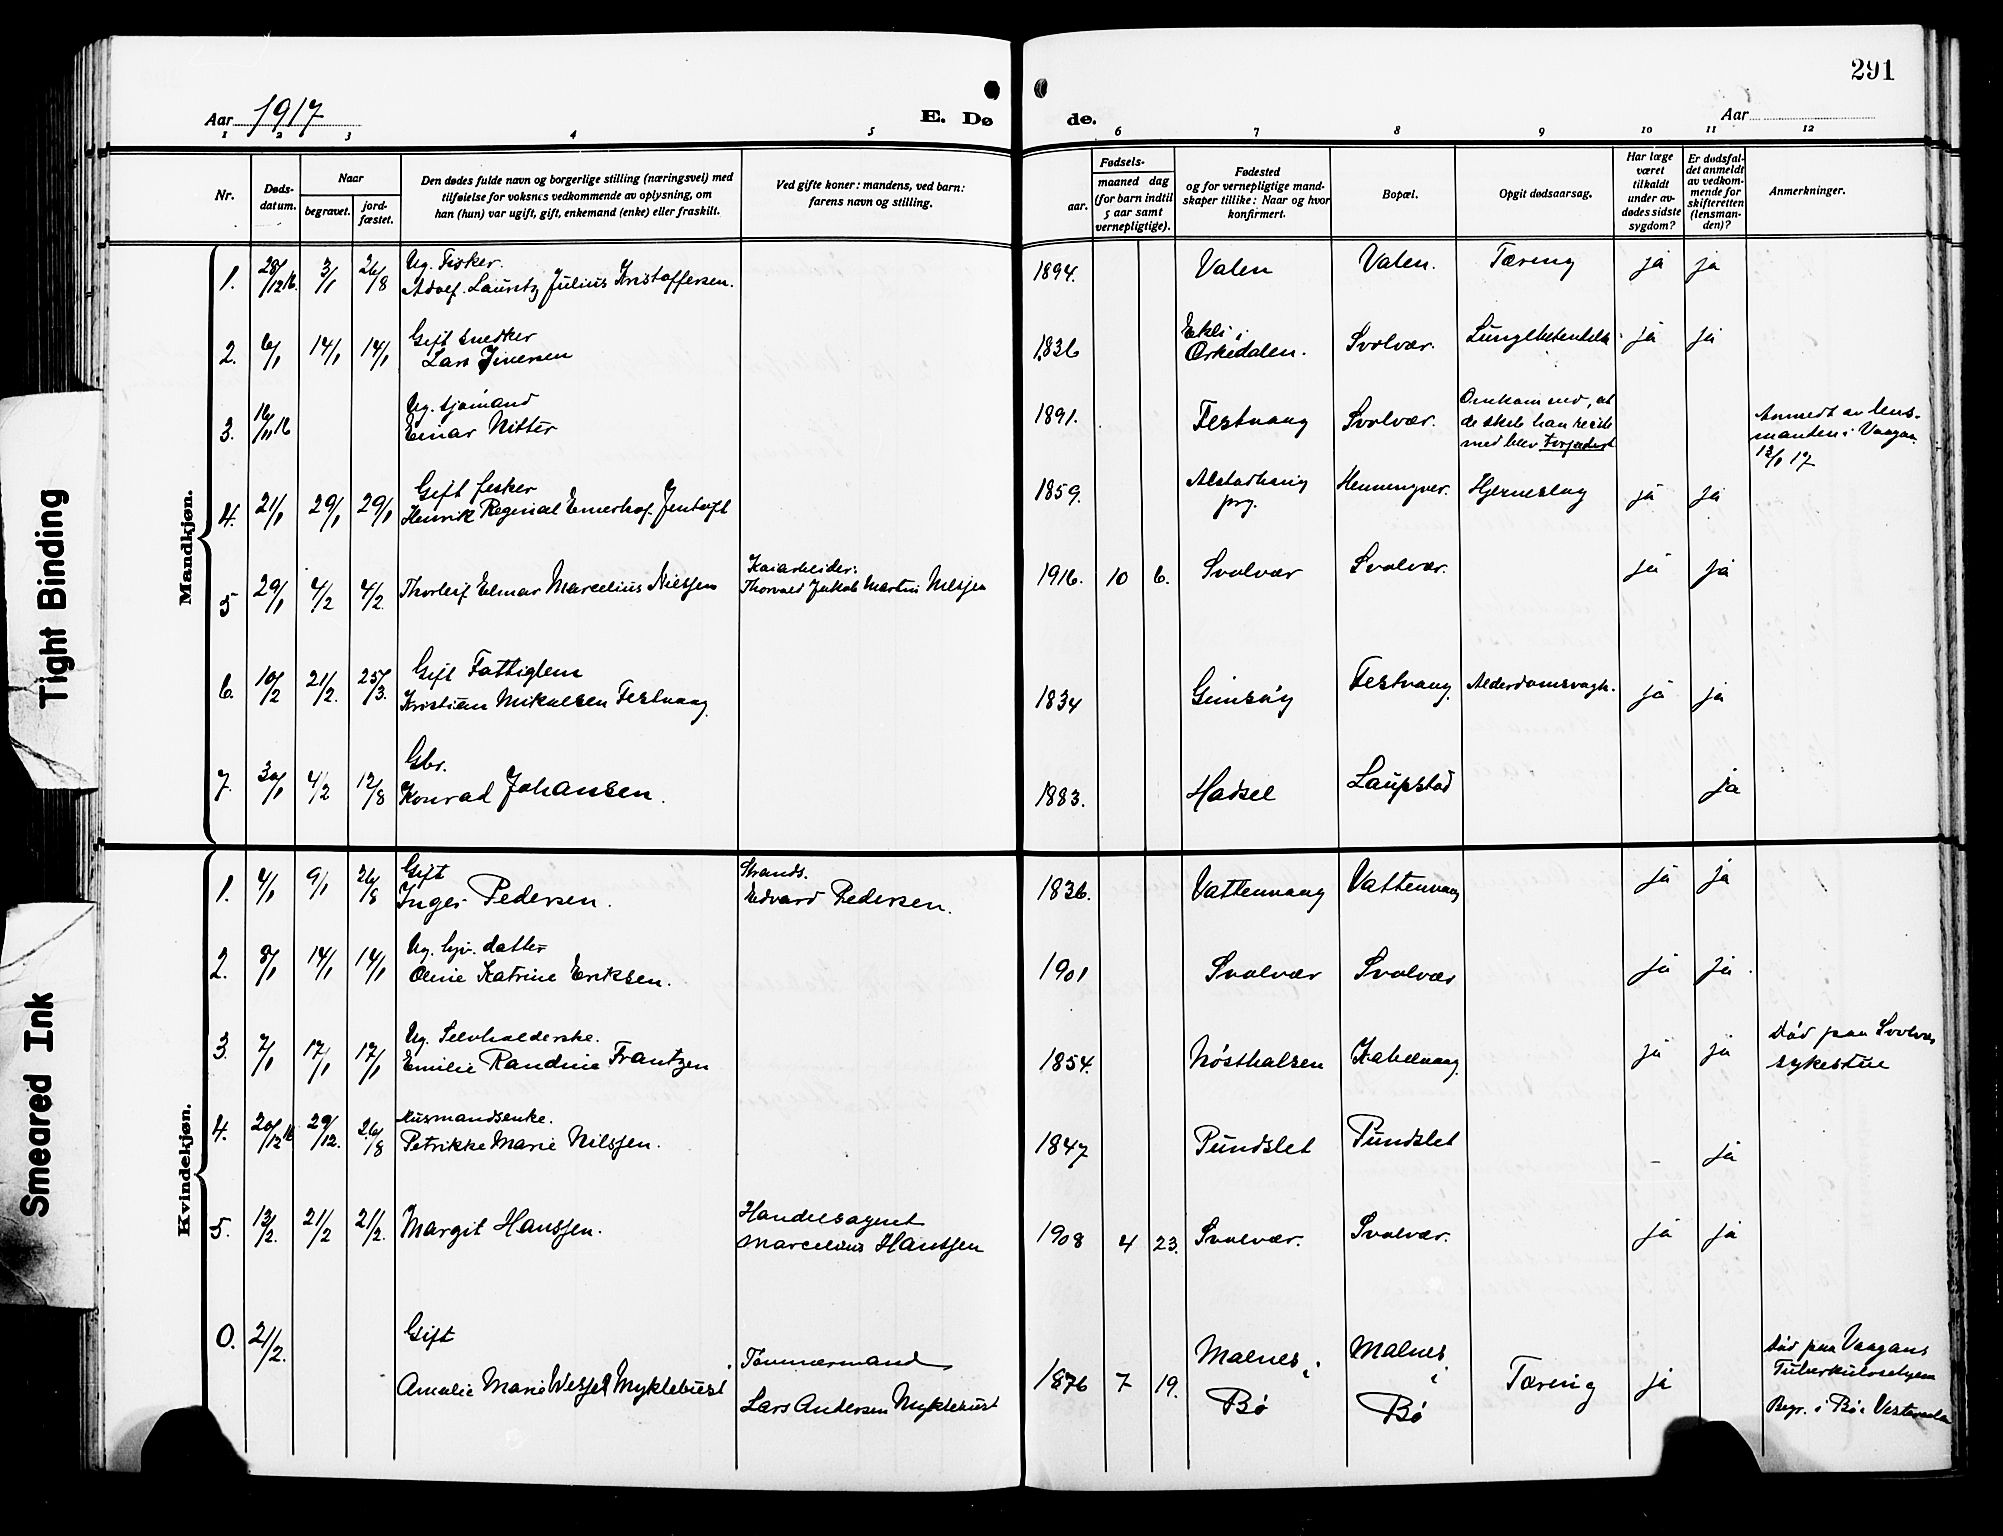 291
Aar 1917
E. Dø
de.
Aar
1 2 3 4 5 6 7 8 9 10 11 12
Nr.
Døds-
datum.
Naar
begravet.
jord-
fæstet.
Den dødes fulde navn og borgerlige stilling (næringsvei) med
tilføielse for voksnes vedkommende av oplysning, om
han (hun) var ugift, gift, enkemand (enke) eller fraskilt.
Ved gifte koner: mandens, ved barn:
farens navn og stilling.
Fødsels-
aar.
maaned dag
(for barn indtil
5 aar samt
vernepligtige).
Fødested
og for vernepligtige mand-
skaper tillike: Naar og hvor
konfirmert.
Bopæl.
Opgit dødsaarsag.
Har læge
været
tilkaldt
under av-
dødes sidste
sygdom?
Er dødsfal-
det anmeldt
av vedkom-
mende for
skifteretten
(lensman-
den)?
Anmerkninger.
Mandkjøn.
Ug. Fisker.
1. 28/12 16. 3/1 26/8 Adolf. Lauritz Julius Kristoffersen. 1894. Valen Valen. Tæring ja ja
Gift snedker
2. 6/1 14/1 14/1 Lars Iversen 1836 Ekli i
Orkedalen. Svolvær. Lungebetendelse ja ja
Ug. sjømand
3. 16/11 16 Einar Nitter 1891. Festvaag Svolvær. Omkom ved, at
de skib han reiste
med blev torpedert
Anmeldt av lens-
manden i Vaagan
13/1 17
Gift fisker
4. 21/1 29/1 29/1 Henrik Reginal Emerhof. Jentoft 1859. Alstadhaug
prg. Henningsvær. Hjerneslag ja ja
Kaiarbeider:
5 29/1 4/2 4/2. Thorleif Elmar Marcelius Nilssen Thorvald Jakob Martin Nilssen 1916. 10 6. Svolvær Svolvær. ja ja
Gift Fattiglem
6. 10/2 21/2. 25/3. Kristian Mikalsen Festvaag. 1834 Gimsøy Festvaag. Alderdomssvagh. ja ja
Gbr.
7. 30/1 4/2 12/8 Konrad Johansen. 1883. Hadsel Laupstad ja
Kvindekjøn.
Gift Strands.
1. 4/1 9/1 26/8 Inger Pedersen. Edvard Pedersen. 1836. Vattenvaag Vattenvaag ja ja
Ug. hjv. datter
2. 8/1 14/1 14/1 Oline Katrine Eriksen. 1901 Svolvær Svolvær ja ja
Ug. Selvholderske.
3. 7/1 17/1 17/1 Emilie Randine Frantzen 1854. Nøsthalsen Kabelvaag. ja ja Død paa Svolvær
sykestue
Husmandsenke.
4. 20/12 16 29/12. 26/8 Petrikke Marie Nilssen. 1847 Pundslet Pundslet - ja
5. 13/2. 21/2 21/2. Margit Hanssen. Handelsagent
Marcelius Hanssen 1908 4 23. Svolvær. Svolvær. ja ja
0. 21/2. Gift
Amalie Marie Wessel Myklebust. Tømmermand
Lars Andersen Myklebust 1876 7 19. Malnes i
Bø Malnes i
Bø Tæring ja Død paa Vaagans
Tuberkulosehjem
Begr. i Bø i Vesteraalen
Tight Binding
Smeared Ink